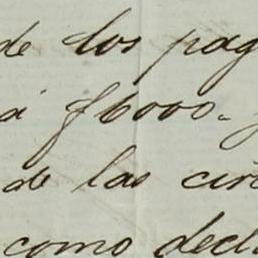 de los pag
á $6000.
de las cir
como decl